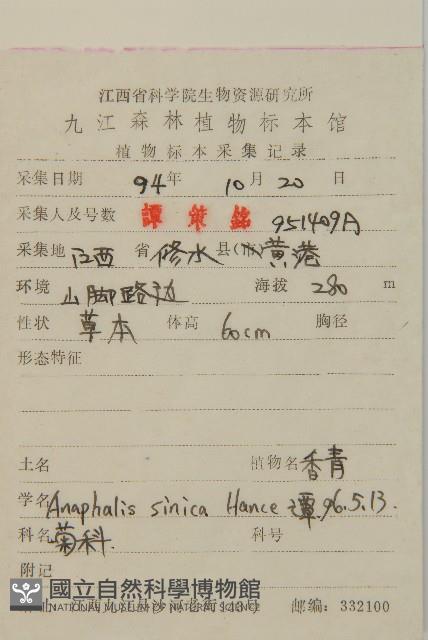 江西省科学院生物资源研究所
九江森林植物标本馆
植物标本采集记录
采集日期 94年 10月 20日
采集人及号数 譚策銘 951409A
采集地 江西 省 修水 县(市) 黄港
环境 山脚路边 海拔 280 m
性状 草本 体高 60cm 胸径
形态特征
土名 植物名 香青
学名 Anaphalis sinica Hance 谭.96.5.13.
科名 菊科. 科号
附记
國立自然科學博物館
NATIONAL MUSEUM OF NATURAL SCIENCE
邮编: 332100